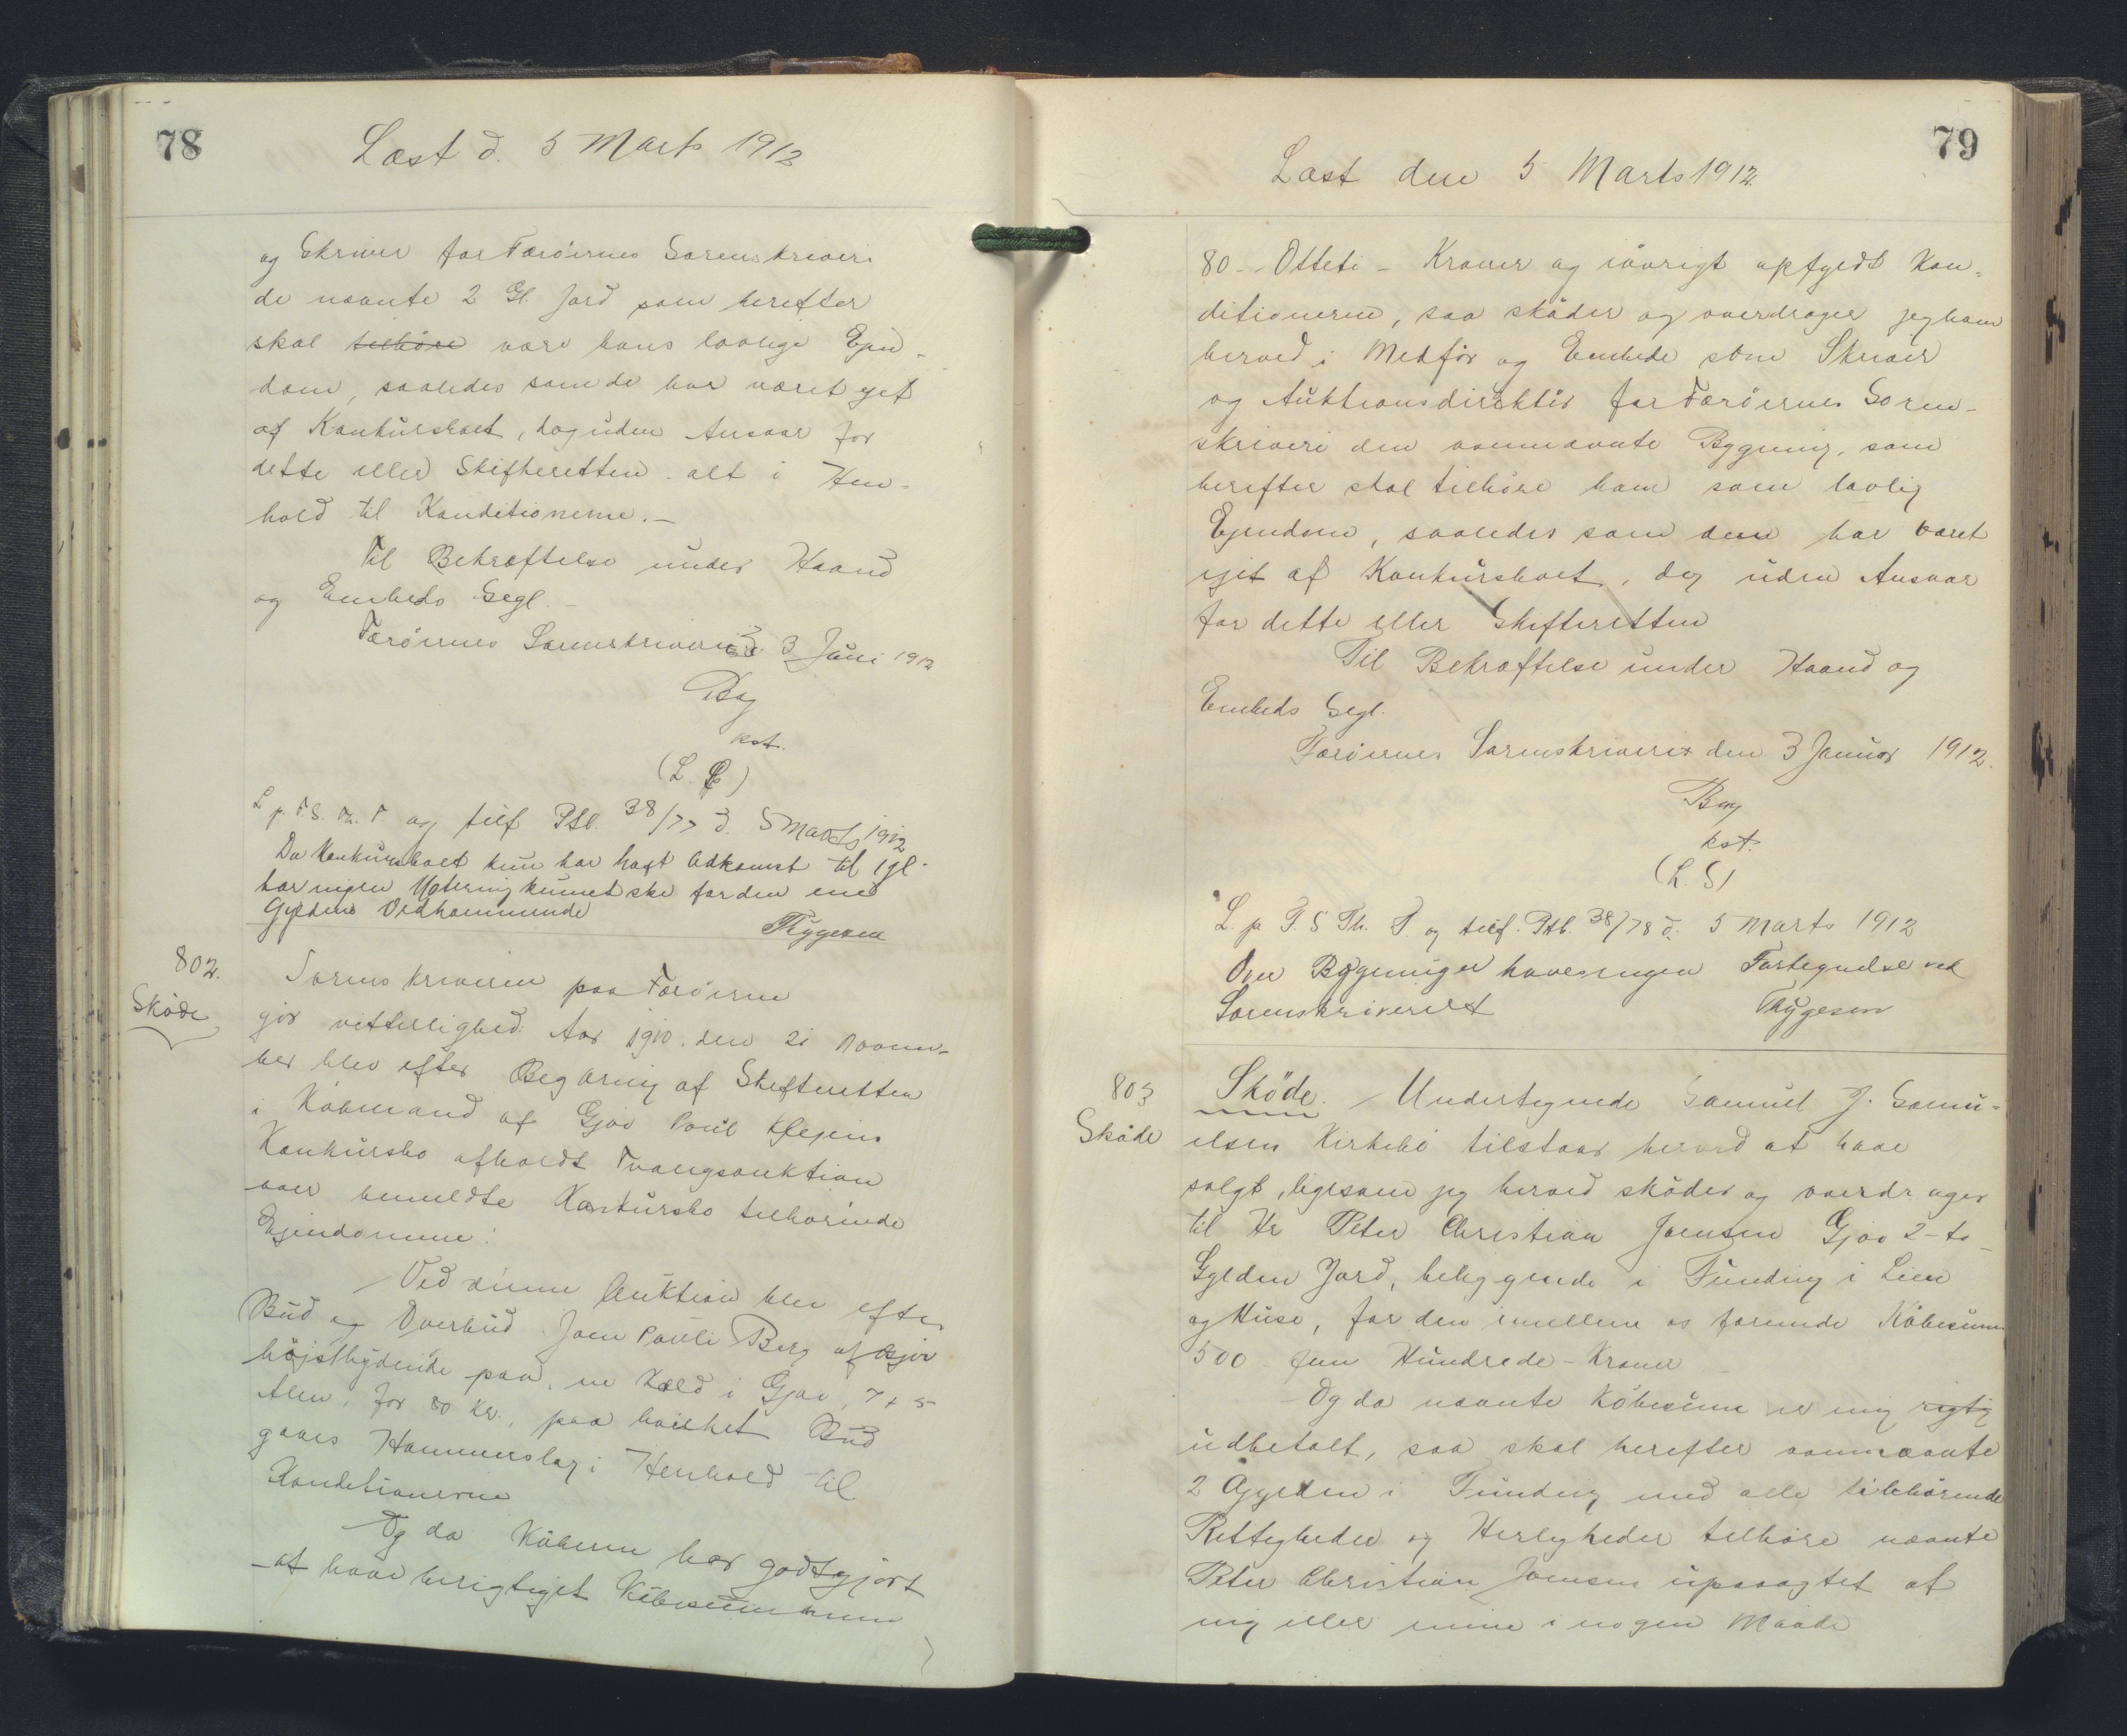 78
Læst d. 5 Marts 1912
og Skriver for Færöernes Sorenskriveri
de nævnte 2 Gl. Jord som herefter
skal tilhöre være hans lovlige Ejen-
dom, saaledes som de har været ejet
af Konkursboet, dog uden Ansvar for
dette eller Skifteretten. alt i Hen-
hold til Konditionerne.-
Til Bekræftelse under Haand
og Embeds Segl.-
Færöernes Sorenskriveri d. 3 Juni 1912
kst.
(L. S.)
L. p. F. S. Th. T. og tilf Ptb. 38/77 d. 5 Marts 1912
Da Konkursboet kun har havt Adkomst til 1 gl.
har ingen Notering kunnet ske for den ene
Gyldens Vedkommende
Thygesen
802.
Sköde
Sorenskriveren paa Færöerne
gör vitterlighed: Aar 1910. den 21 Novem-
ber blev efter Begæring af Skifteretten
i Köbmand af Gjov Poul Klejens
Konkursbo afholdt Tvangsauktion
over bemeldte Konkursbo tilhörende
Ejendomme:
Ved denne Auktion blev efter
Bud og Overbud Joen Pauli Berg af Gjov
höjstbydende paa, en Kæld i Gjov, 7 x 5
Alen, for 80 Kr., paa hvilket Bud
gaves Hammerslag i Henhold til
Konditionerne
Og da Köberen har godtgjort
at have berigtiget Köbesummen
79
Læst den 5 Marts 1912.
80 - Otteti - Kroner og iövrigt opfyldt Kon-
ditionerne, saa sköder og overdrager jeg ham
herved i Medför og Embede som Skriver
og Auktionsdirektör for Færöernes Soren-
skriveri den ovennævnte Bygning, som
herefter skal tilhöre ham som lovlig
Ejendom, saaledes som den har været
ejet af Konkursboet, dog uden Ansvar
for dette eller Skifteretten
Til Bekræftelse under Haand og
Embeds Segl.
Færöernes Sorenskriveri den 3 Januar 1912.
kst.
(L. S)
L. p. F. S Th. T. og tilf. Ptb. 38/78 d. 5 Marts 1912
Over Bygninger haves ingen Fortegnelse ved
Sorenskriveriet
Thygesen
803
Sköde
Sköde. / Undertegnede Samuel J. Samu-
elsen Kirkebö tilstaar herved at have
solgt, ligesom jeg herved sköder og overdrager
til Hr Peter Christian Joensen Gjov 2 - to -
Gylden Jord, beliggende i Funding i Lien
og Huse, for den imellem os forenede Köbesum
500 - fem Hundrede - Kroner
Og da nævnte Köbesum er mig rigtig
udbetalt, saa skal herefter ovennævnte
2 Gylden i Funding med alle tilhörende
Rettigheder og Herligheder tilhöre nævnte
Peter Christian Joensen upaaagtet af
mig eller mine i nogen Maade